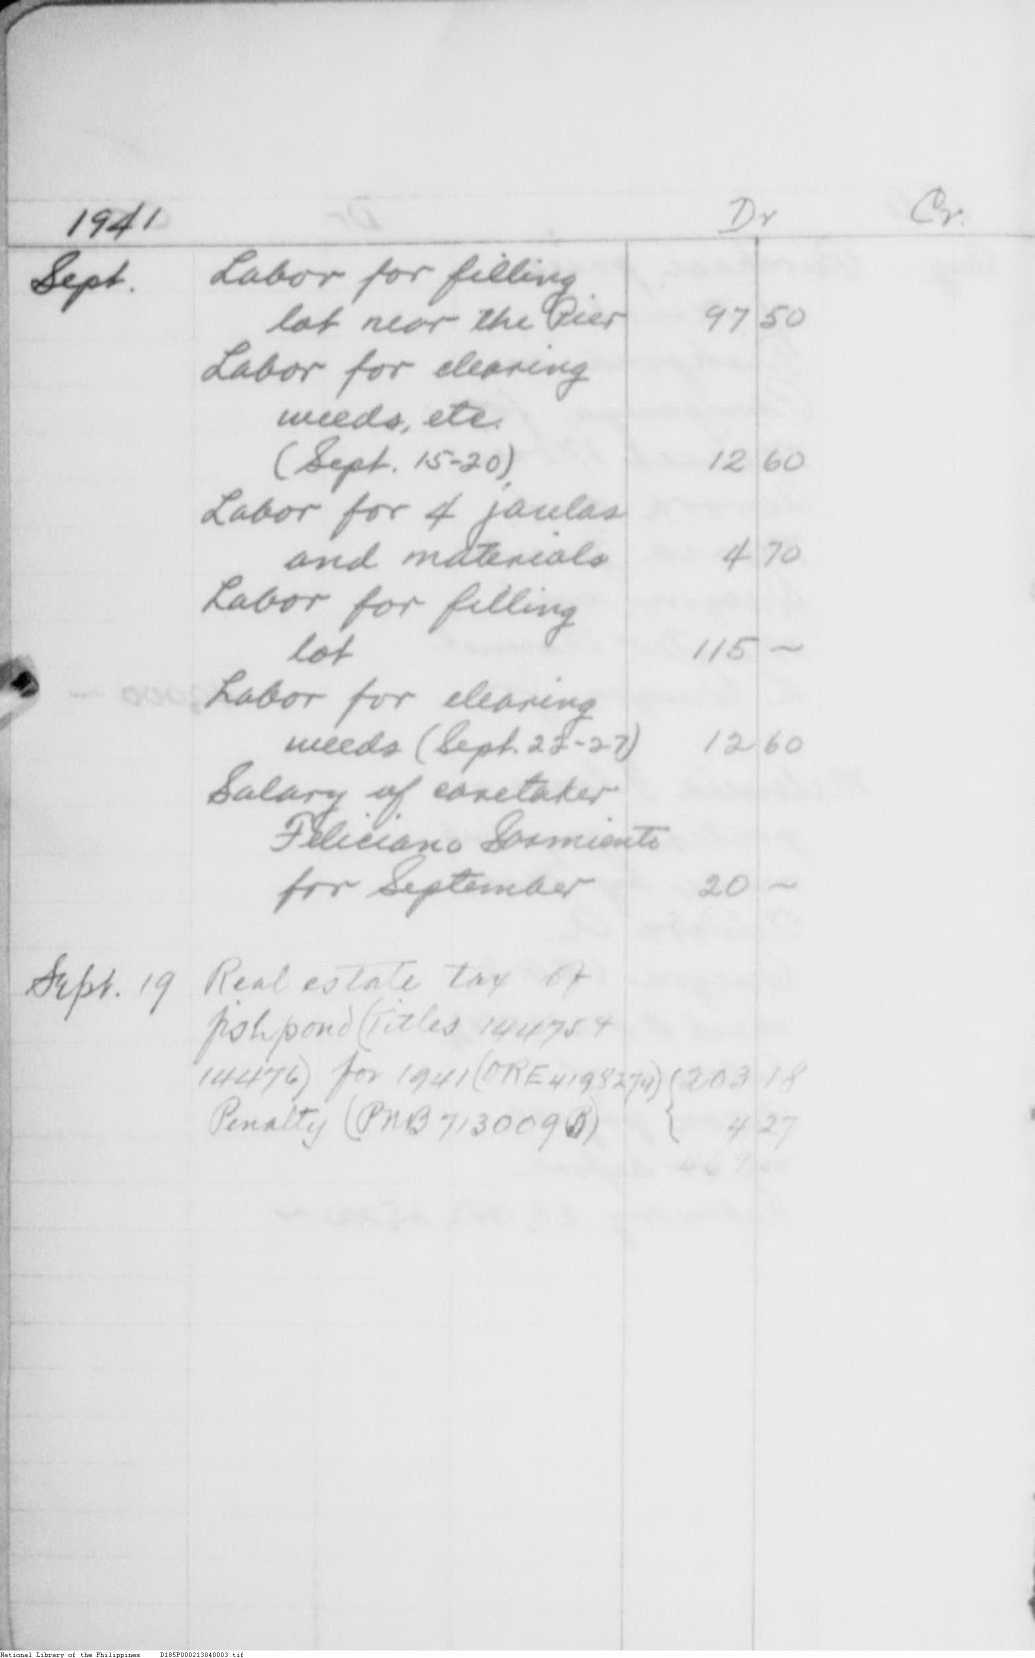 1941 Dr Cr.
Sept. Labor for filling
lot near the Pier 97 50
Labor for clearing
weeds, etc.
(Sept. 15-20) 12 60
Labor for 4 jaulas
and materials 4 70
Labor for filling
lot 115 ~
Labor for clearing
weeds (Sept. 22-27) 12 60
Salary of caretaker
Feliciano Sarmiento
for September 20 ~
Sept. 19 Real estate tax of
fishpond (Titles 14475 &
14476) for 1941 ( { 203 18
Penalty (PNB 713009 4 27
National Library of the Philippines D185P000213040003.tif